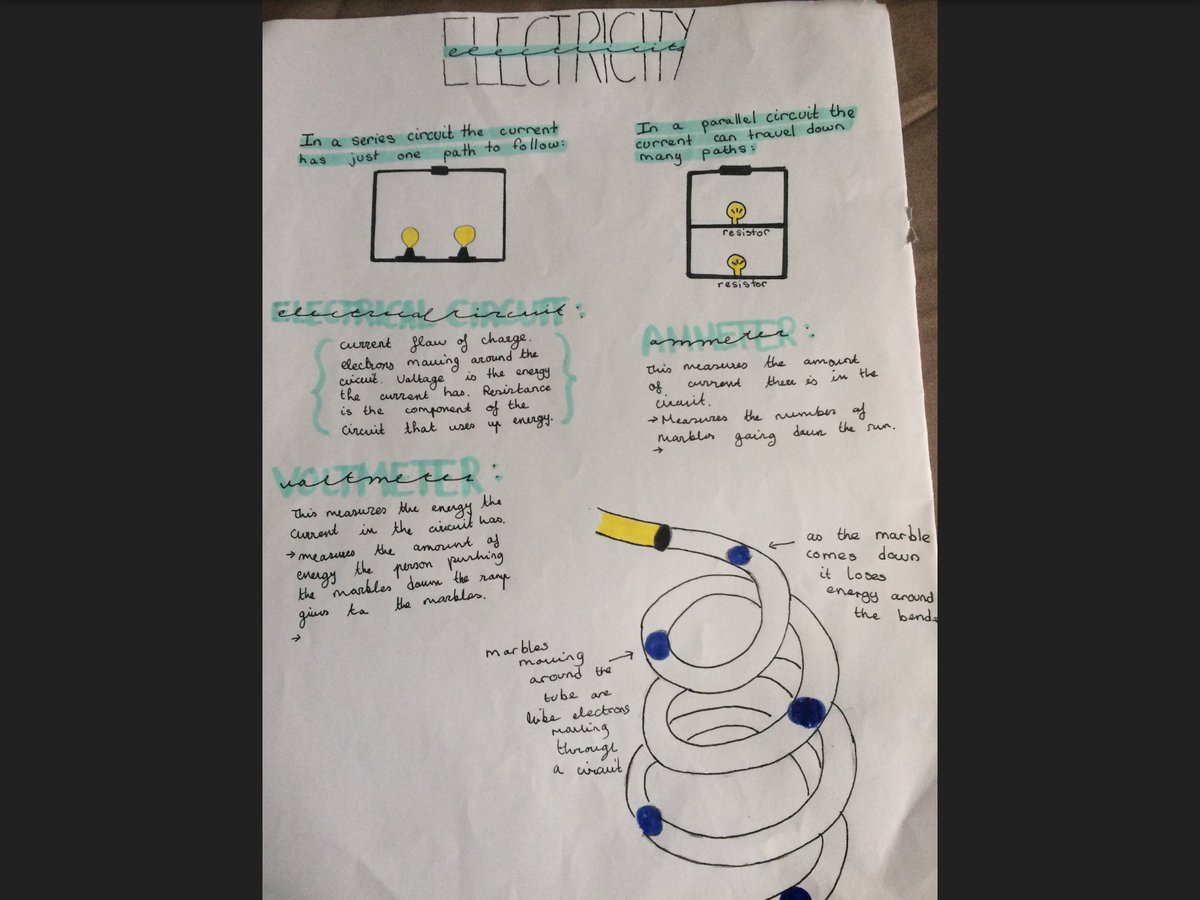 ELECTRICITY
electricity
In a series circuit the current
has just one path to follow:
In a parallel circuit the
current can travel down
many paths:
resistor
resistor
ELECTRICAL CIRCUIT:
electrical circuit
current flow of charge.
electrons moving around the
circuit. Voltage is the energy
the current has. Resistance
is the component of the
circuit that uses up energy.
AMMETER:
ammeter
This measures the amount
of current there is in the
circuit.
→ Measures the number of
marbles going down the run.
→
VOLTMETER:
voltmeter
This measures the energy the
current in the circuit has.
→ measures the amount of
energy the person pushing
the marbles down the ramp
gives to the marbles.
→
as the marble
comes down
it loses
energy around
the bends
marbles
moving
around the
tube are
like electrons
moving
through
a circuit